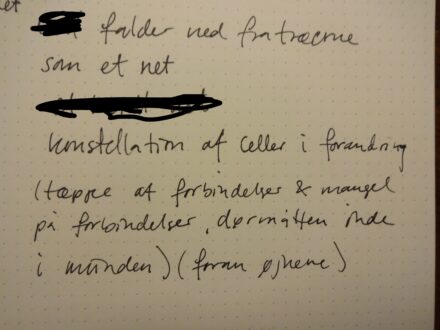 et
falder ned fra træerne
som et net
konstellation af celler i forandring
(tæppe af forbindelser & mangel
på forbindelser, dørmåtten inde
i munden) (foran øjnene)